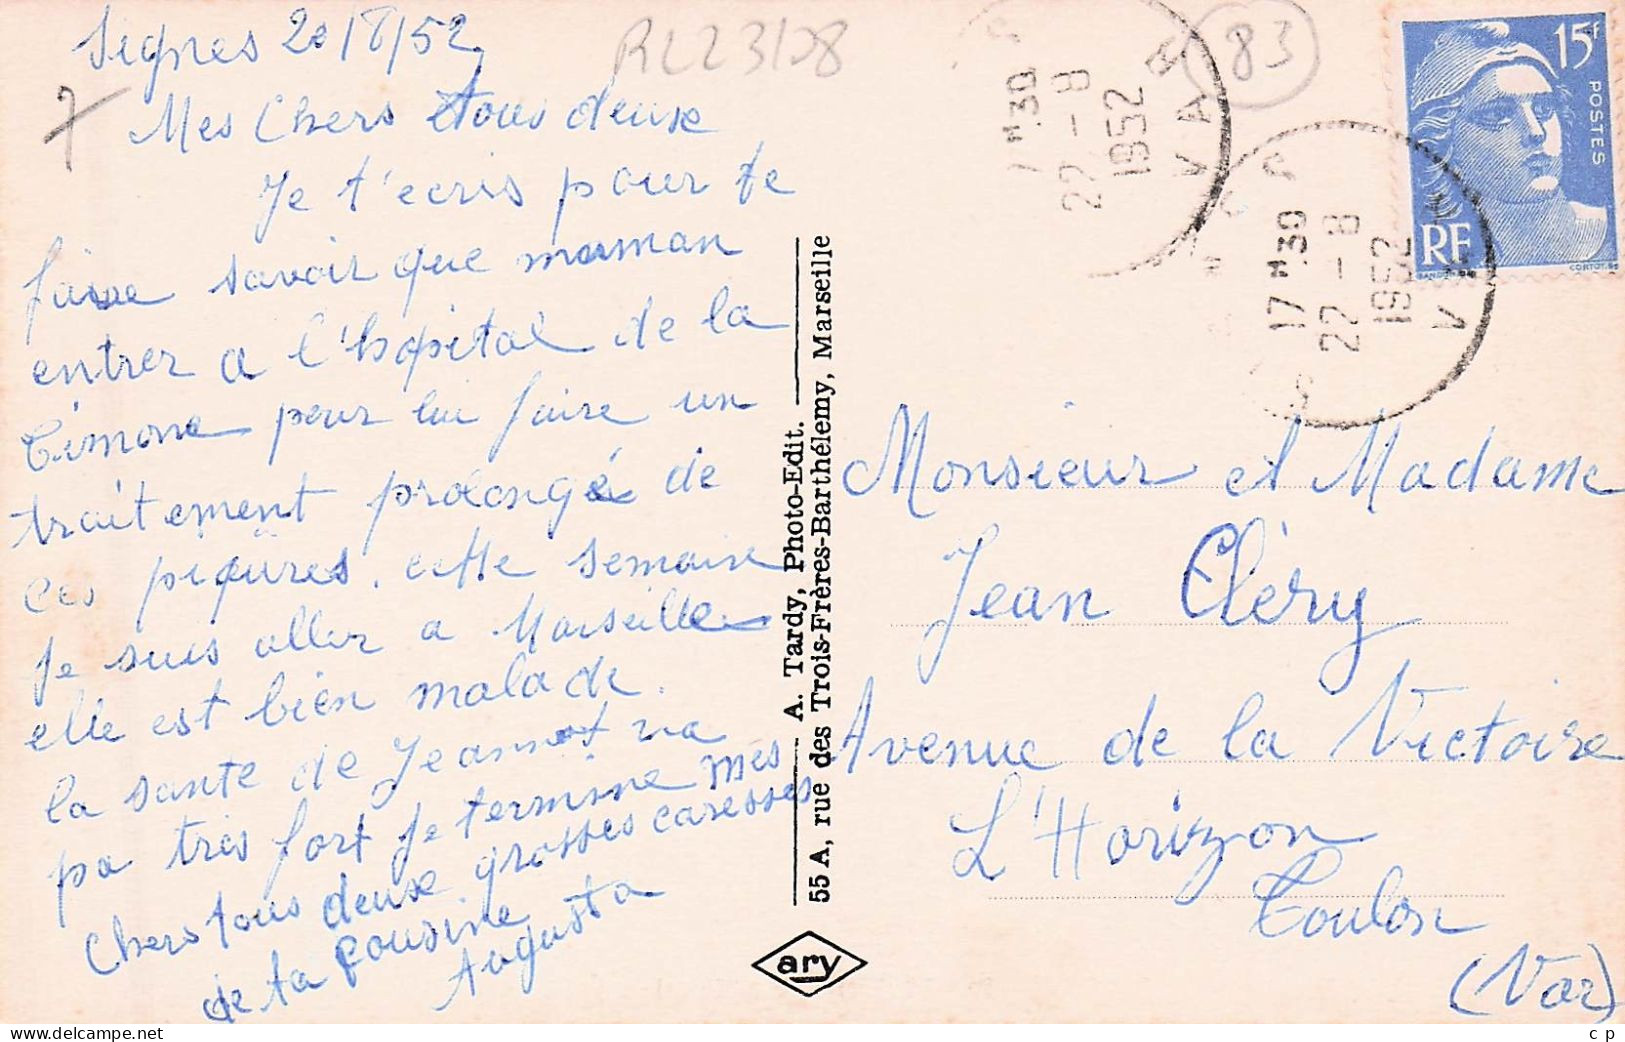 Signes 20/8/52
Mes Chers tous deuse
Je t'ecris pour te
faire savoir que maman
entrer a l'hopital de la
Timone pour lui faire un
traitement prolongé de
ces piqures. cette semaine
Je suis aller a Marseille
elle est bien malade.
la sante de Jeannot va
pa tres fort Je termine mes
Chers tous deuse grosses caresses
de ta Cousine
Augusta
RL23108
83
7
17 H 30
22 - 8
1952
VAR
17 H 30
22 - 8
1952
15f
POSTES
RF
A. Tardy, Photo-Edit.
55 A, rue des Trois-Frères-Barthélemy, Marseille
ary
Monsieur et Madame
Jean Cléry
Avenue de la Victoire
L'Horizon
Toulon
(Var)
delcampe.net